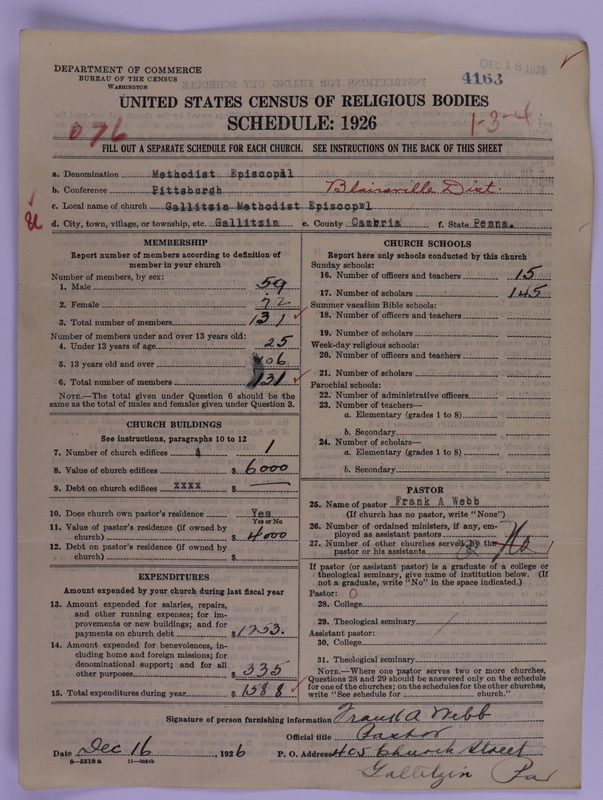 DEC 18 1926
4163
DEPARTMENT OF COMMERCE
BUREAU OF THE CENSUS
WASHINGTON
UNITED STATES CENSUS OF RELIGIOUS BODIES
SCHEDULE: 1926
076
1-3-4
FILL OUT A SEPARATE SCHEDULE FOR EACH CHURCH. SEE INSTRUCTIONS ON THE BACK OF THIS SHEET
a. Denomination Methodist Episcopal
b. Conference Pittsburgh Blairsville Dist.
c. Local name of church Gallitzin Methodist Episcopwl
d. City, town, village, or township, etc. Gallitzin e. County Cambria f. State Penna.
MEMBERSHIP
Report number of members according to definition of member in your church
Number of members, by sex:
1. Male 59
2. Female 72
3. Total number of members 131
Number of members under and over 13 years old:
4. Under 13 years of age 25
5. 13 years old and over 106
6. Total number of members 131
NOTE.—The total given under Question 6 should be the same as the total of males and females given under Question 3.
CHURCH BUILDINGS
See instructions, paragraphs 10 to 12
7. Number of church edifices 1
8. Value of church edifices $ 6000
9. Debt on church edifices xxxx $ —
10. Does church own pastor's residence Yes
Yes or No
11. Value of pastor's residence (if owned by church) $ 4000
12. Debt on pastor's residence (if owned by church) $
EXPENDITURES
Amount expended by your church during last fiscal year
13. Amount expended for salaries, repairs, and other running expenses; for improvements or new buildings; and for payments on church debt $ 1253.
14. Amount expended for benevolences, including home and foreign missions; for denominational support; and for all other purposes $ 335
15. Total expenditures during year $ 1588
CHURCH SCHOOLS
Report here only schools conducted by this church
Sunday schools:
16. Number of officers and teachers 15
17. Number of scholars 145
Summer vacation Bible schools:
18. Number of officers and teachers
19. Number of scholars
Week-day religious schools:
20. Number of officers and teachers
21. Number of scholars
Parochial schools:
22. Number of administrative officers
23. Number of teachers—
a. Elementary (grades 1 to 8)
b. Secondary
24. Number of scholars—
a. Elementary (grades 1 to 8)
b. Secondary
PASTOR
25. Name of pastor Frank A Webb
(If church has no pastor, write "None")
26. Number of ordained ministers, if any, employed as assistant pastors
27. Number of other churches served by the pastor or his assistants No
If pastor (or assistant pastor) is a graduate of a college or theological seminary, give name of institution below. (If not a graduate, write "No" in the space indicated.)
Pastor: 0
28. College
29. Theological seminary
Assistant pastor:
30. College
31. Theological seminary
NOTE.—Where one pastor serves two or more churches, Questions 28 and 29 should be answered only on the schedule for one of the churches; on the schedules for the other churches, write "See schedule for church."
Signature of person furnishing information Frank A Webb
Official title Pastor
Date Dec 16, 1926 P. O. Address 405 Church Street
Gallitzin Pa
8—5518a 11—9084b